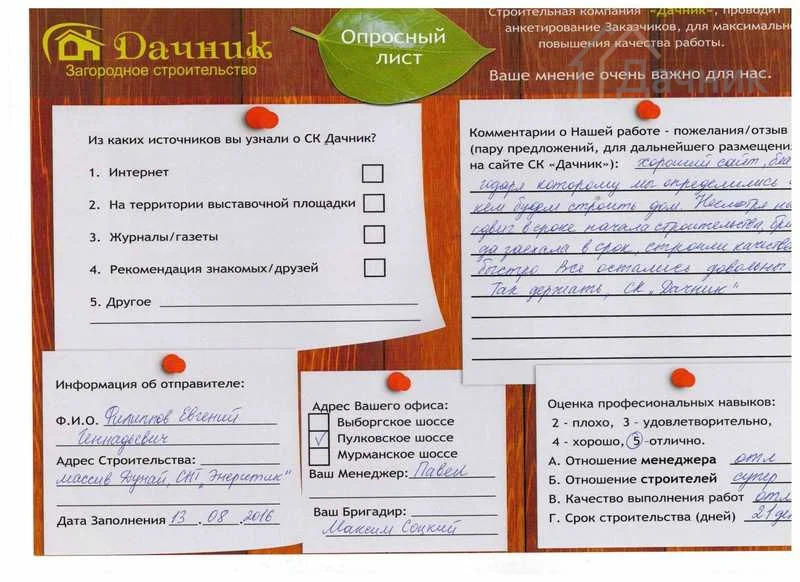 Дачник
Загородное строительство
Опросный
лист
Строительная компания "Дачник", проводит
анкетирование Заказчиков, для максимально
повышения качества работы.
Ваше мнение очень важно для нас.
Дачник
Из каких источников вы узнали о СК Дачник?
1. Интернет
2. На территории выставочной площадки
3. Журналы/газеты
4. Рекомендация знакомых/друзей
5. Другое
Комментарии о Нашей работе - пожелания/отзыв
(пару предложений, для дальнейшего размещени
на сайте СК «Дачник»): хороший сайт, бла
годаря которому мы определились с
кем будем строить дом. Несмотря на
сдвиг в сроке начала строительства, бри
да заехала в срок, строили качестве
быстро. Все остались довольны
Так держать, СК „Дачник"
Информация об отправителе:
Ф.И.О. Филиппов Евгений
Геннадьевич
Адрес Строительства:
массив Дунай, СНТ „Энергетик"
Дата Заполнения 13 . 08 .2016
Адрес Вашего офиса:
Выборгское шоссе
Пулковское шоссе
Мурманское шоссе
Ваш Менеджер: Павел
Ваш Бригадир:
Максим Соцкий
Оценка профессиональных навыков:
2 - плохо, 3 - удовлетворительно,
4 - хорошо, 5 -отлично.
А. Отношение менеджера отл
Б. Отношение строителей супер
В. Качество выполнения работ отл
Г. Срок строительства (дней) 21 де